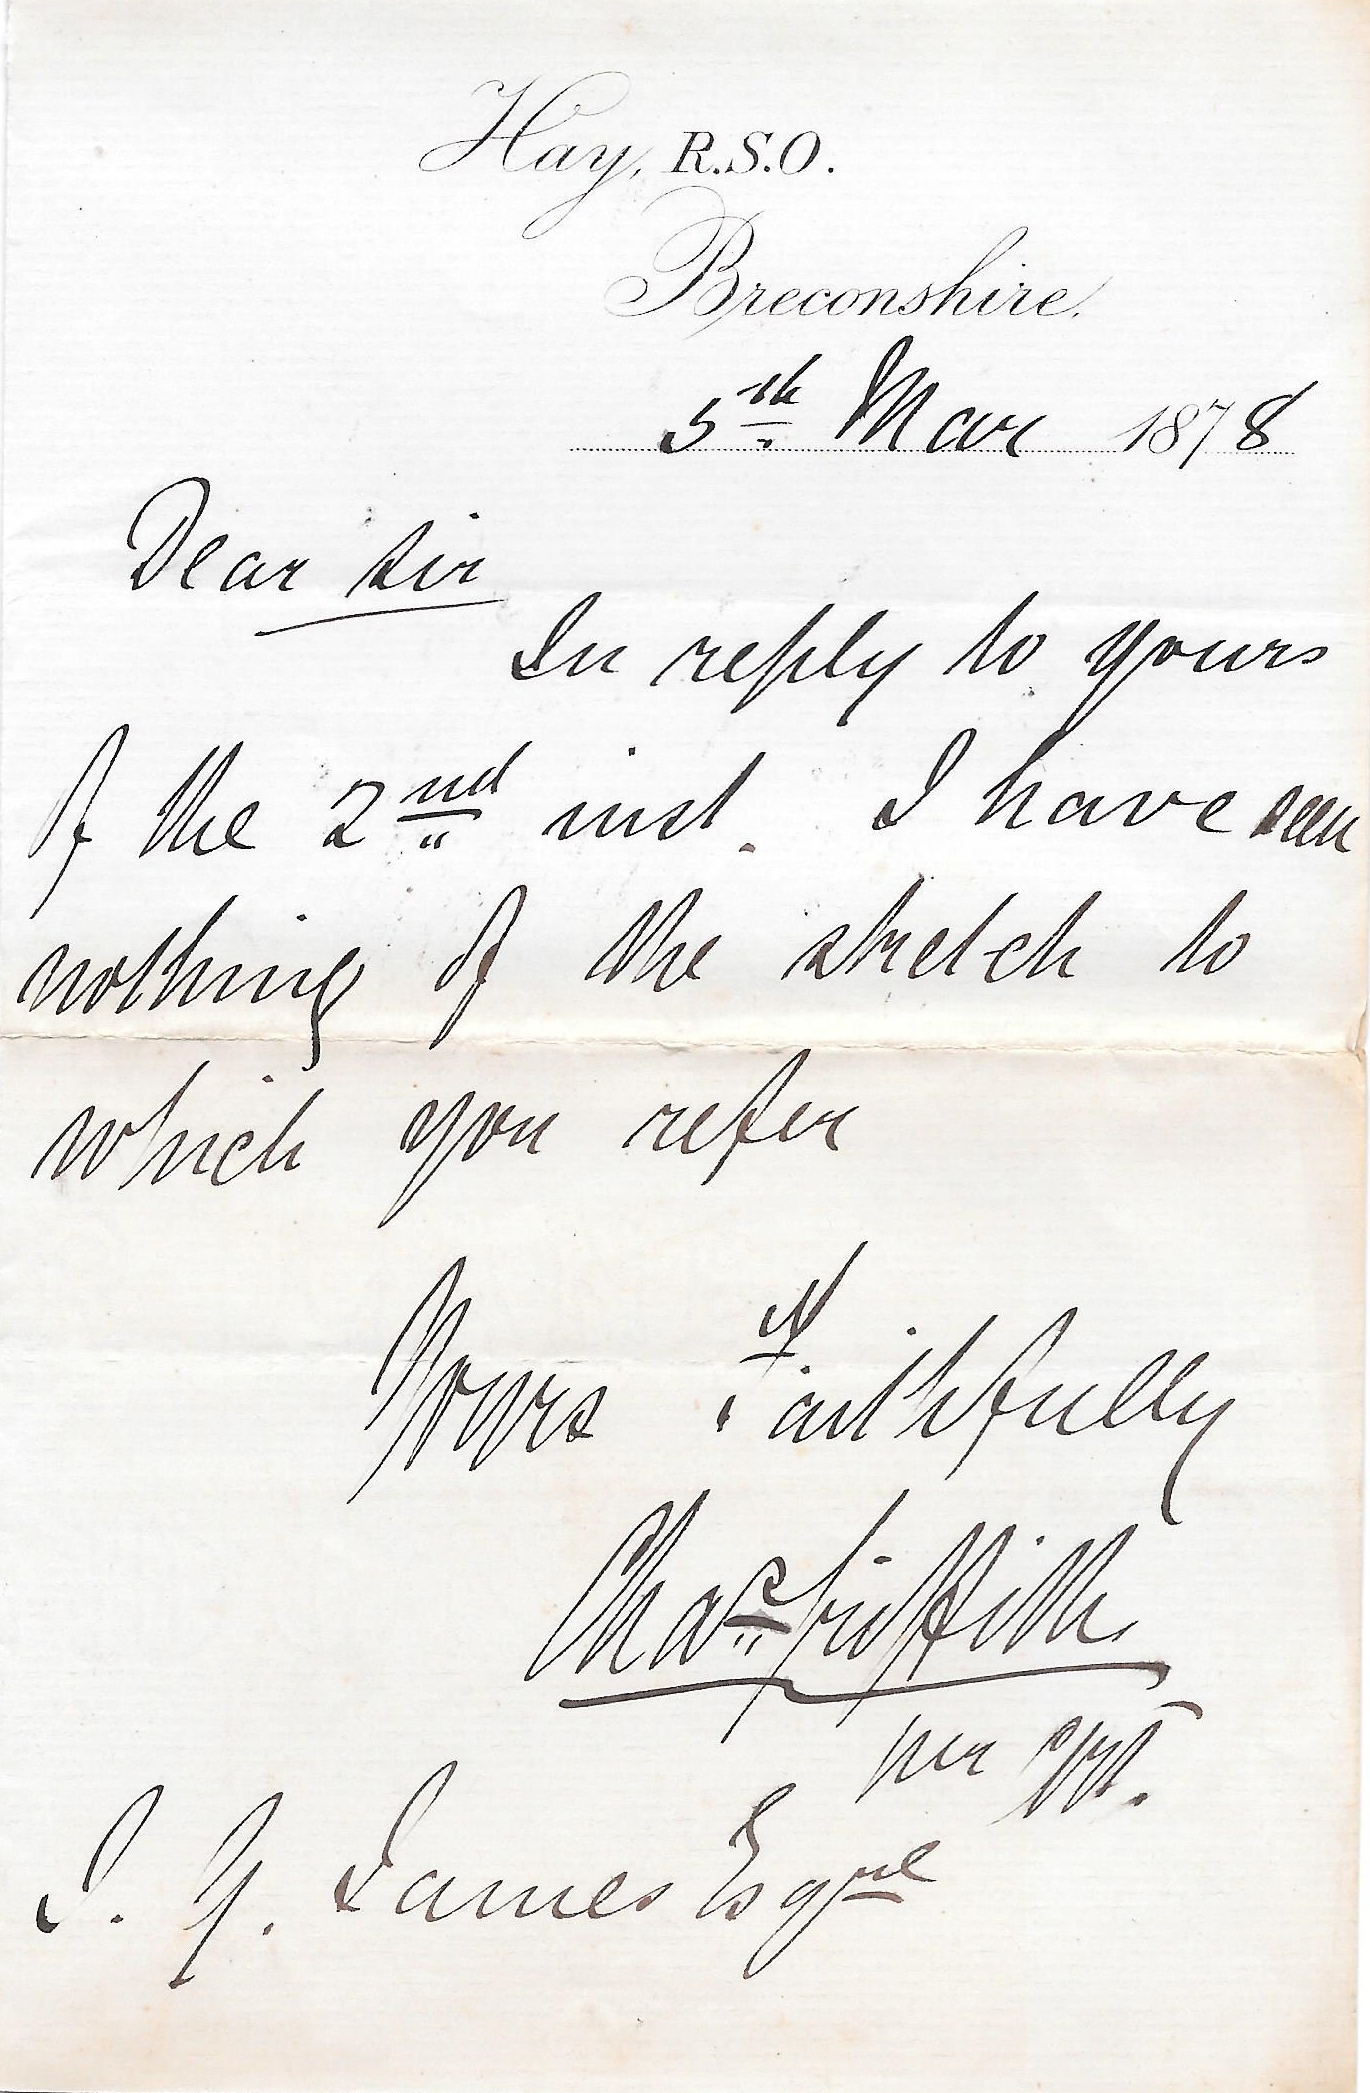 Hay, R.S.O.
Breconshire.
5th Mar 1878
Dear Sir
In reply to yours
of the 2nd inst. I have seen
nothing of the sketch to
which you refer
Yours Faithfully
Chas Griffith
per
James Esqre